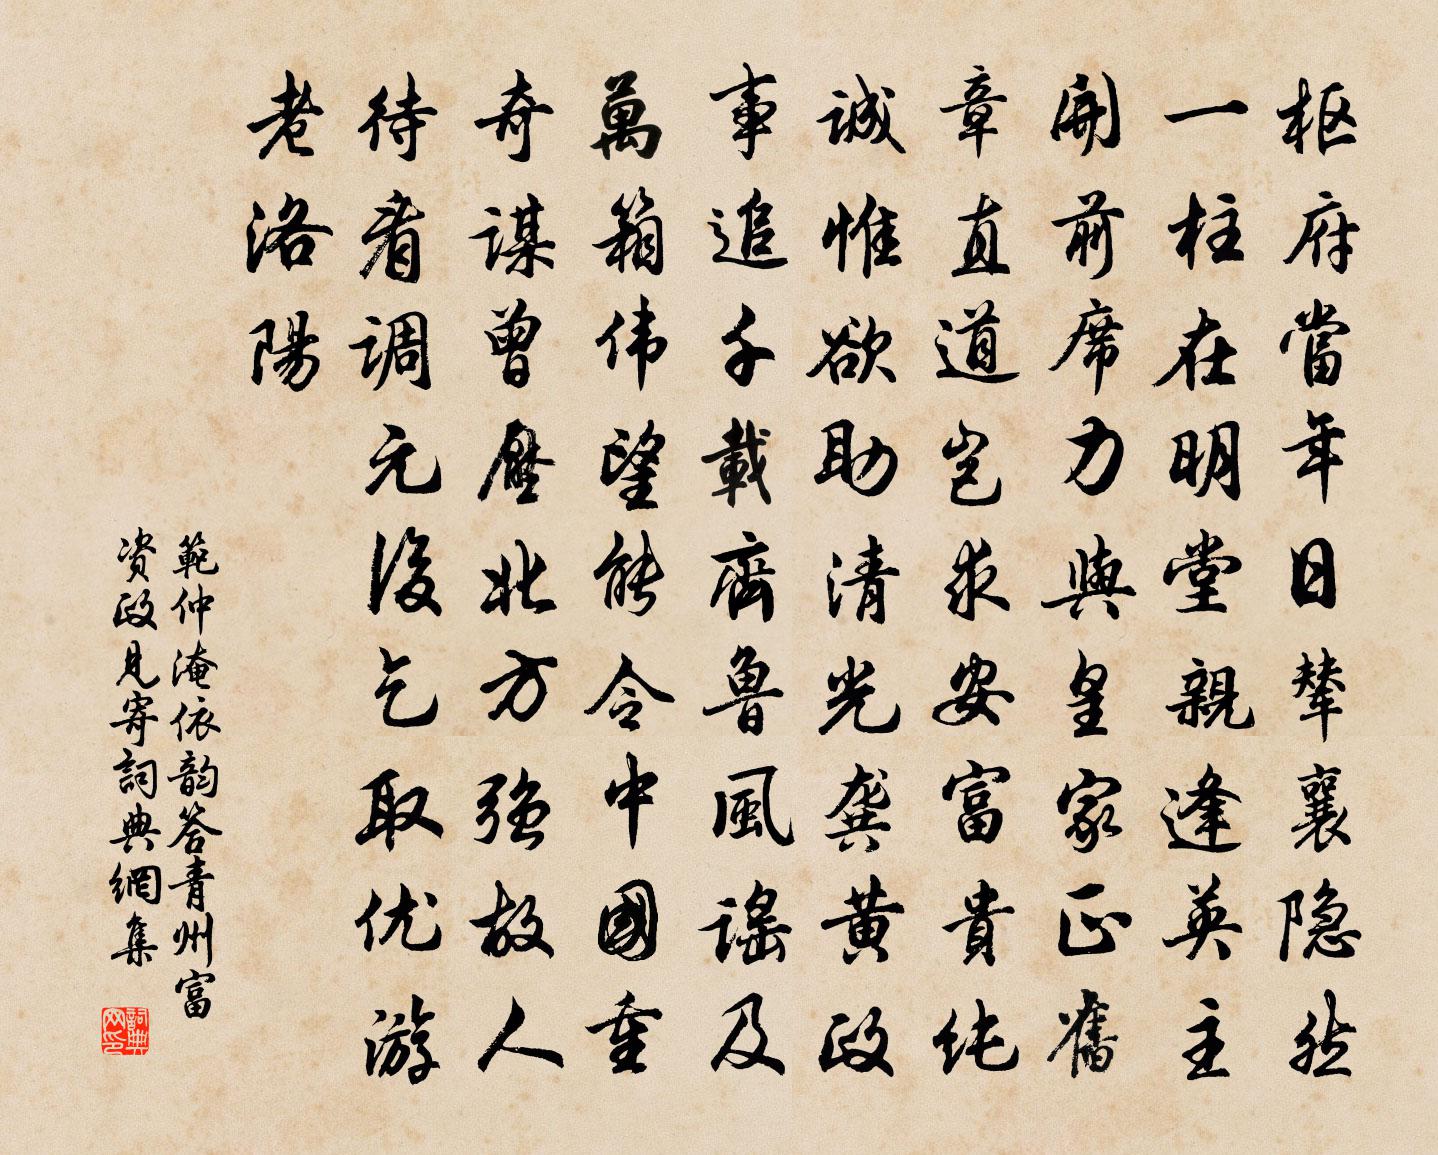 枢府當年日辇襄隐然
一柱在明堂親逢英主
開前席力與皇家正舊
章直道岂求安富貴纯
誠惟欲助清光龚黄政
事追千載齊魯風謡及
萬箱伟望能令中國重
奇谋曾壓北方强故人
待看调元後乞取优游
老洛陽
範仲淹依韵答青州富
资政見寄詞典網集
詞典网印